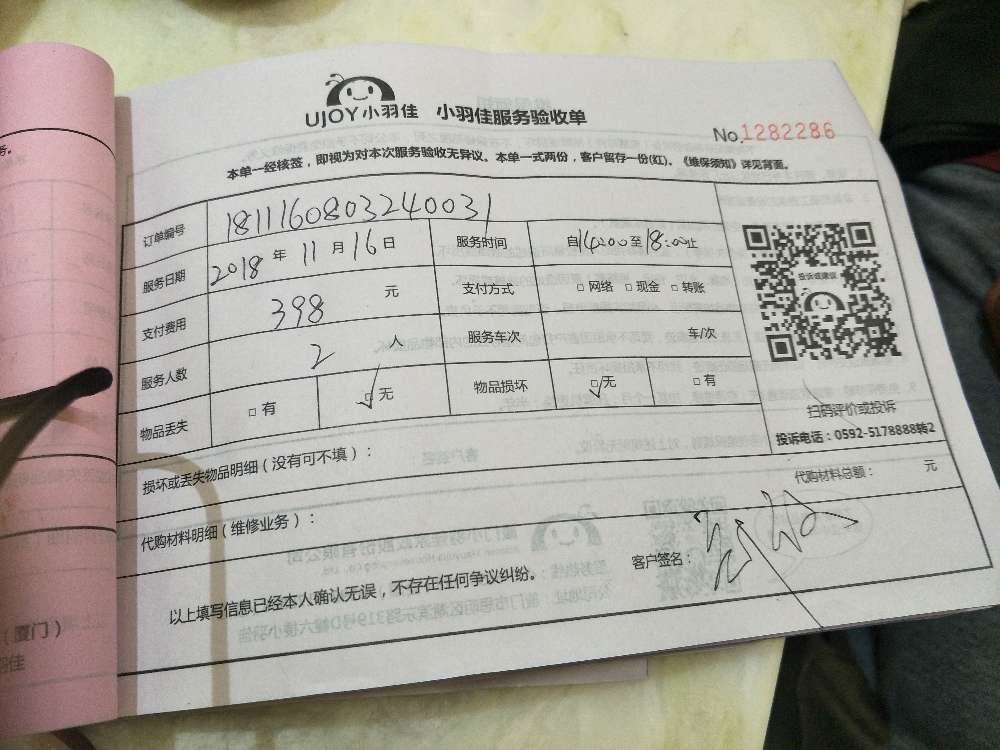 UJOY小羽佳 小羽佳服务验收单
No.1282286
本单一经核签，即视为对本次服务验收无异议。本单一式两份，客户留存一份(红)、《维保须知》详见背面。
订单编号 1811160803240031
服务日期 2018 年 11 月 16 日 服务时间 自14:00至18:00止
支付费用 398 元 支付方式 □ 网络 □ 现金 □ 转账
服务人数 2 人 服务车次 车/次
物品丢失 □ 有 □ 无 物品损坏 □ 无 □ 有
投诉或建议
扫码评价或投诉
投诉电话：0592-5178888转2
损坏或丢失物品明细（没有可不填）：
代购材料总额： 元
代购材料明细（维修业务）：
客户签名：
以上填写信息已经本人确认无误，不存在任何争议纠纷。
务。
（厦门）
羽佳